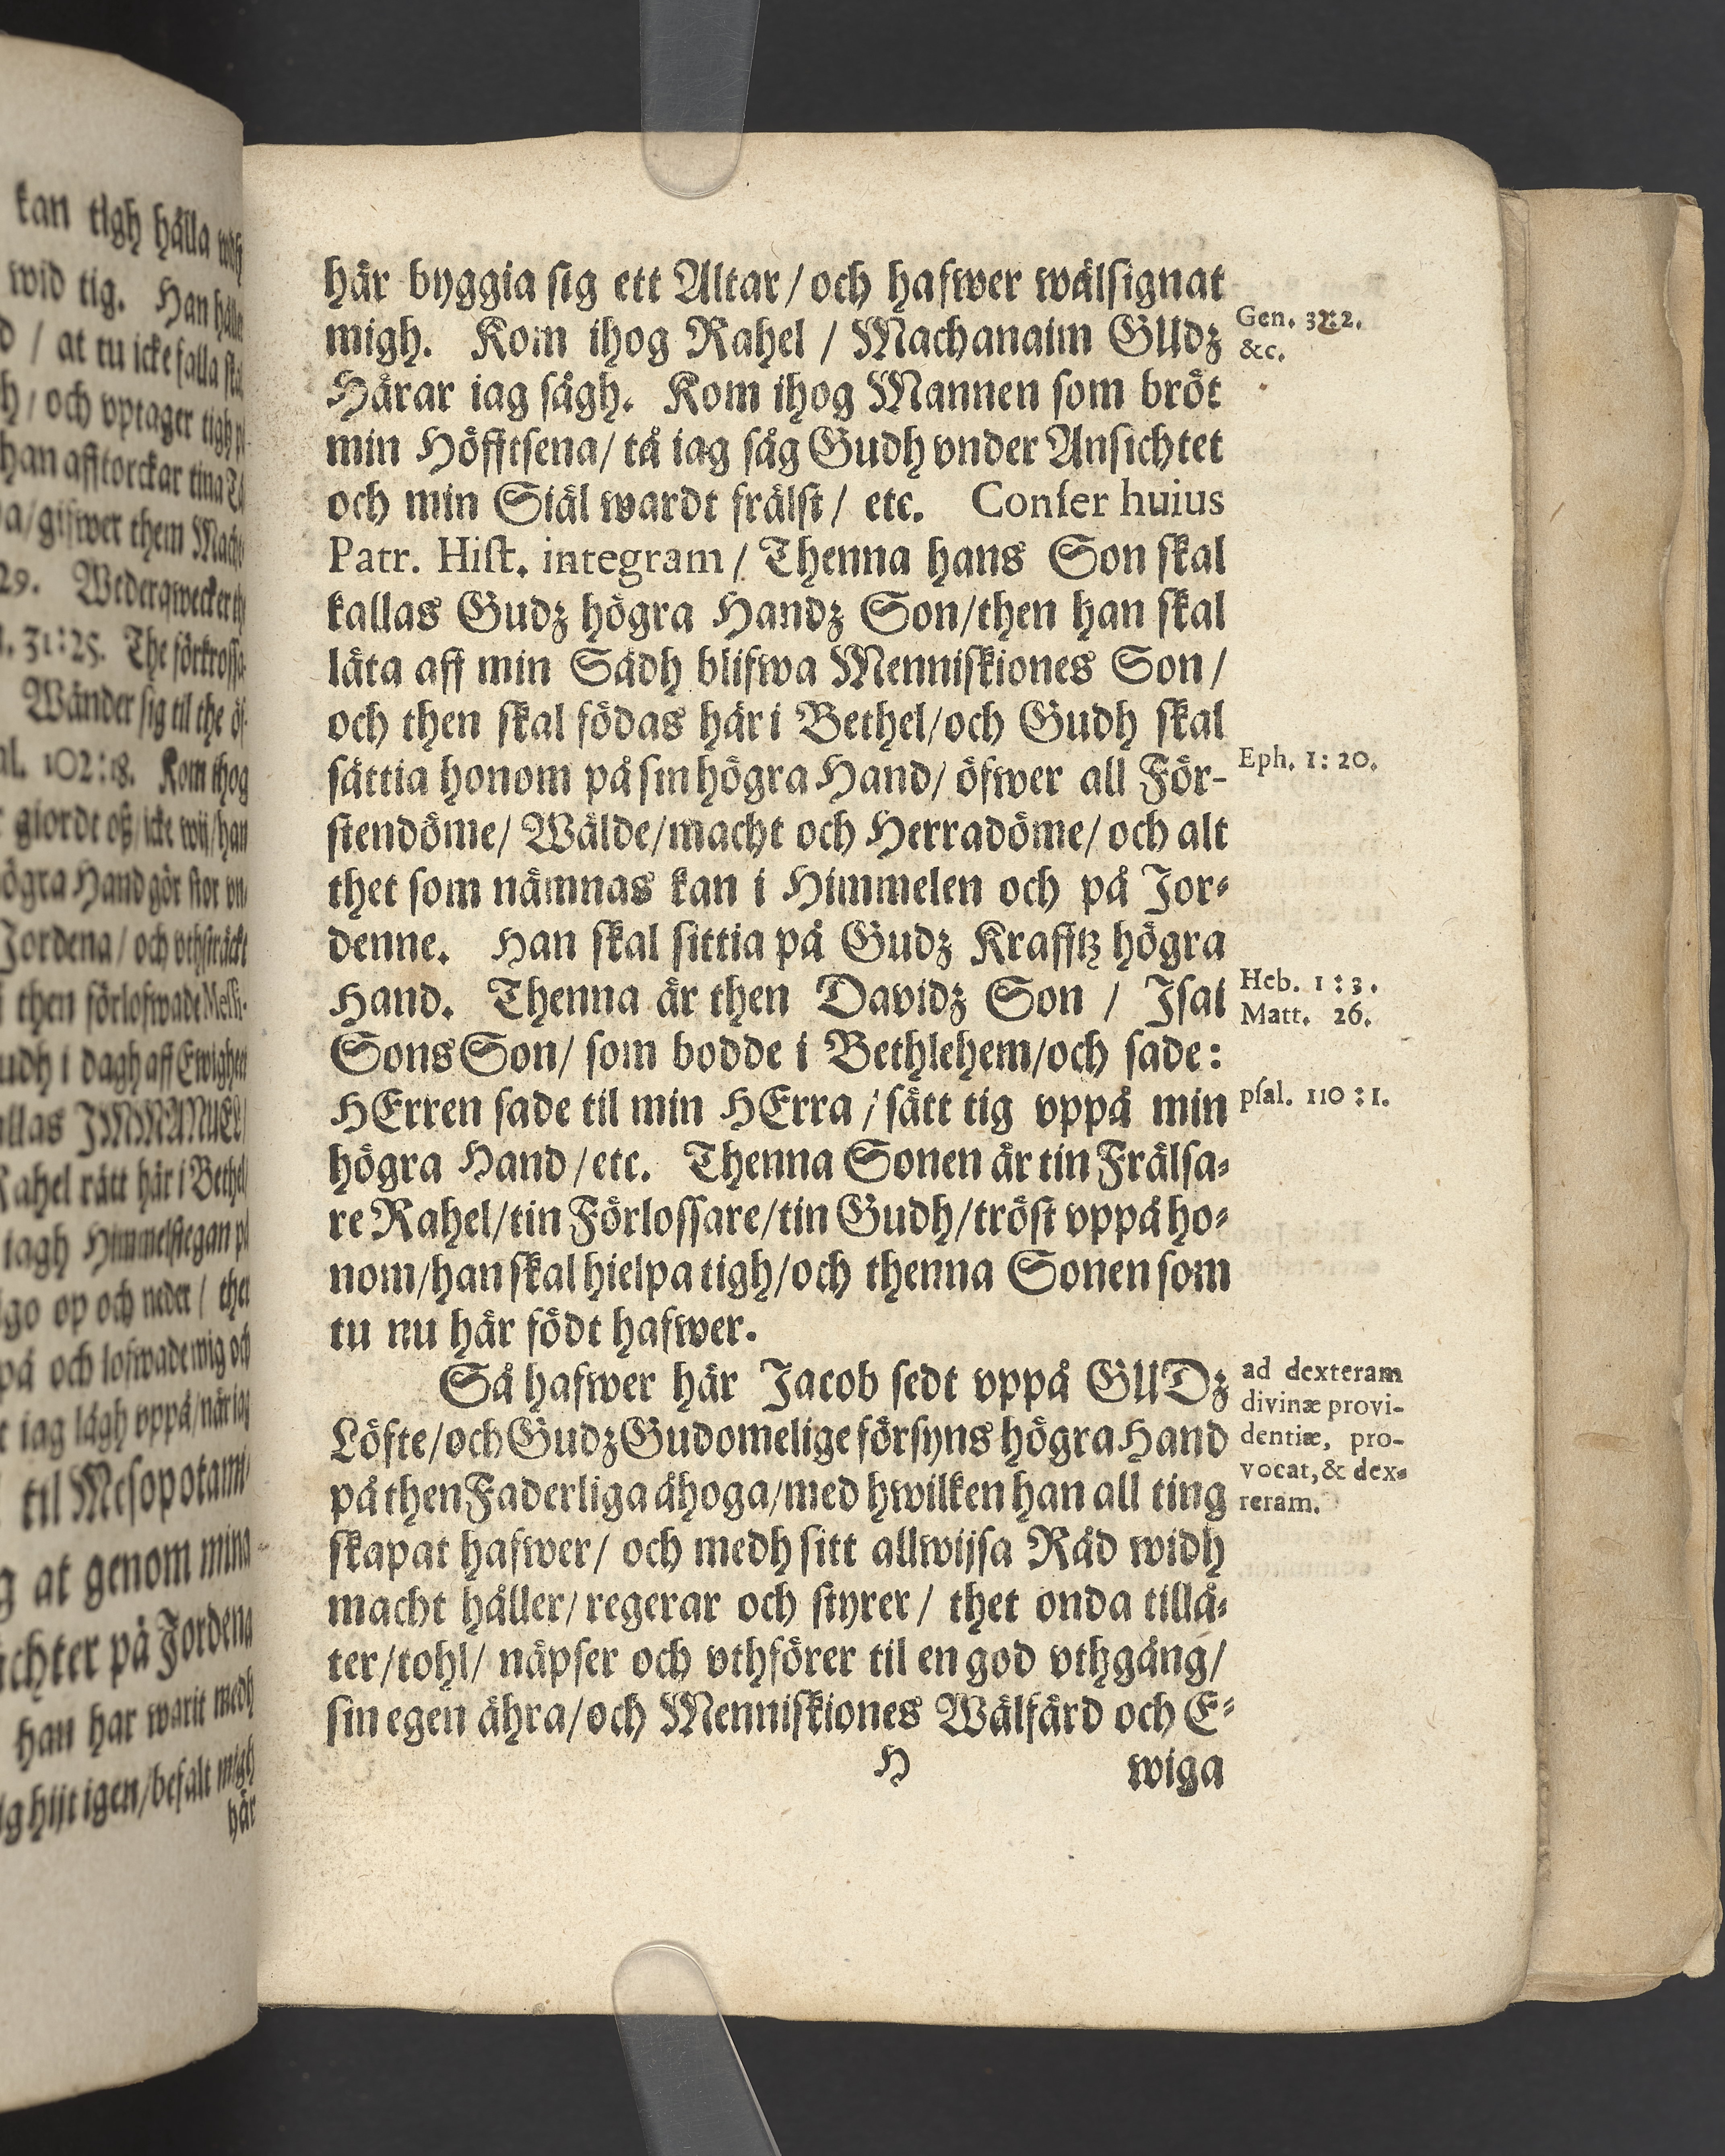 kan tigh hålla
wid tig. Han hålle
/ at tu icke falla
h / och vptager tigh
han afftorckar tina
a/gifwer them Mach
29. Wederqwecker
31:25. The förkrossa
Wänder sig til the
102:18. Kom ihog
giordt oß/icke wij/han
ögra Hand gör stor vn
Jordena / och vthsträckt
then förlofwade Messi-
udh i dagh aff Ewighet
allas IMMANUEL
Rahel rätt här i Bethel
iagh Himmelstegan
go op och neder / thet
på och lofwade mig och
iag lågh vppå/när iag
til Mesopotami
g at genom mina
ächter på Jordena
han har warit medh
ig hijt igen/befalt migh
här
här byggia sig ett Altar / och hafwer wälsignat
migh. Kom ihog Rahel / Machanaim GUdz
Härar iag sågh. Kom ihog Mannen som bröt
min Höfftsena/ tå iag såg Gudh vnder Ansichtet
och min Siäl wardt frälst / etc. Confer huius
Patr. Hist. integram / Thenna hans Son skal
kallas Gudz högra Handz Son/then han skal
låta aff min Sädh blifwa Menniskiones Son /
och then skal födas här i Bethel/och Gudh skal
sättia honom på sin högra Hand/ öfwer all För-
stendöme/ Wälde/macht och Herradöme/ och alt
thet som nämnas kan i Himmelen och på Jor-
denne. Han skal sittia på Gudz Krafftz högra
Hand. Thenna är then Davidz Son / Isai
Sons Son/ som bodde i Bethlehem/och sade:
HErren sade til min HErra / sätt tig vppå min
högra Hand / etc. Thenna Sonen är tin Frälsa-
re Rahel/tin Förlossare/tin Gudh/tröst vppå ho-
nom/han skal hielpa tigh/och thenna Sonen som
tu nu här födt hafwer.
Så hafwer här Jacob sedt vppå GUDz
Löfte/och Gudz Gudomelige försyns högra Hand
på then Faderliga åhoga/med hwilken han all ting
skapat hafwer/ och medh sitt allwijsa Råd widh
macht håller/ regerar och styrer / thet onda tillå-
ter/tohl/ näpser och vthförer til en god vthgång/
sin egen ähra/och Menniskiones Wälfärd och E-
H wiga
Gen. 32:2.
&c.
Eph. 1: 20.
Heb. 1 : 3.
Matt. 26.
psal. 110 : 1.
ad dexteram
divinæ provi-
dentiæ, pro-
vocat, & dex-
reram.